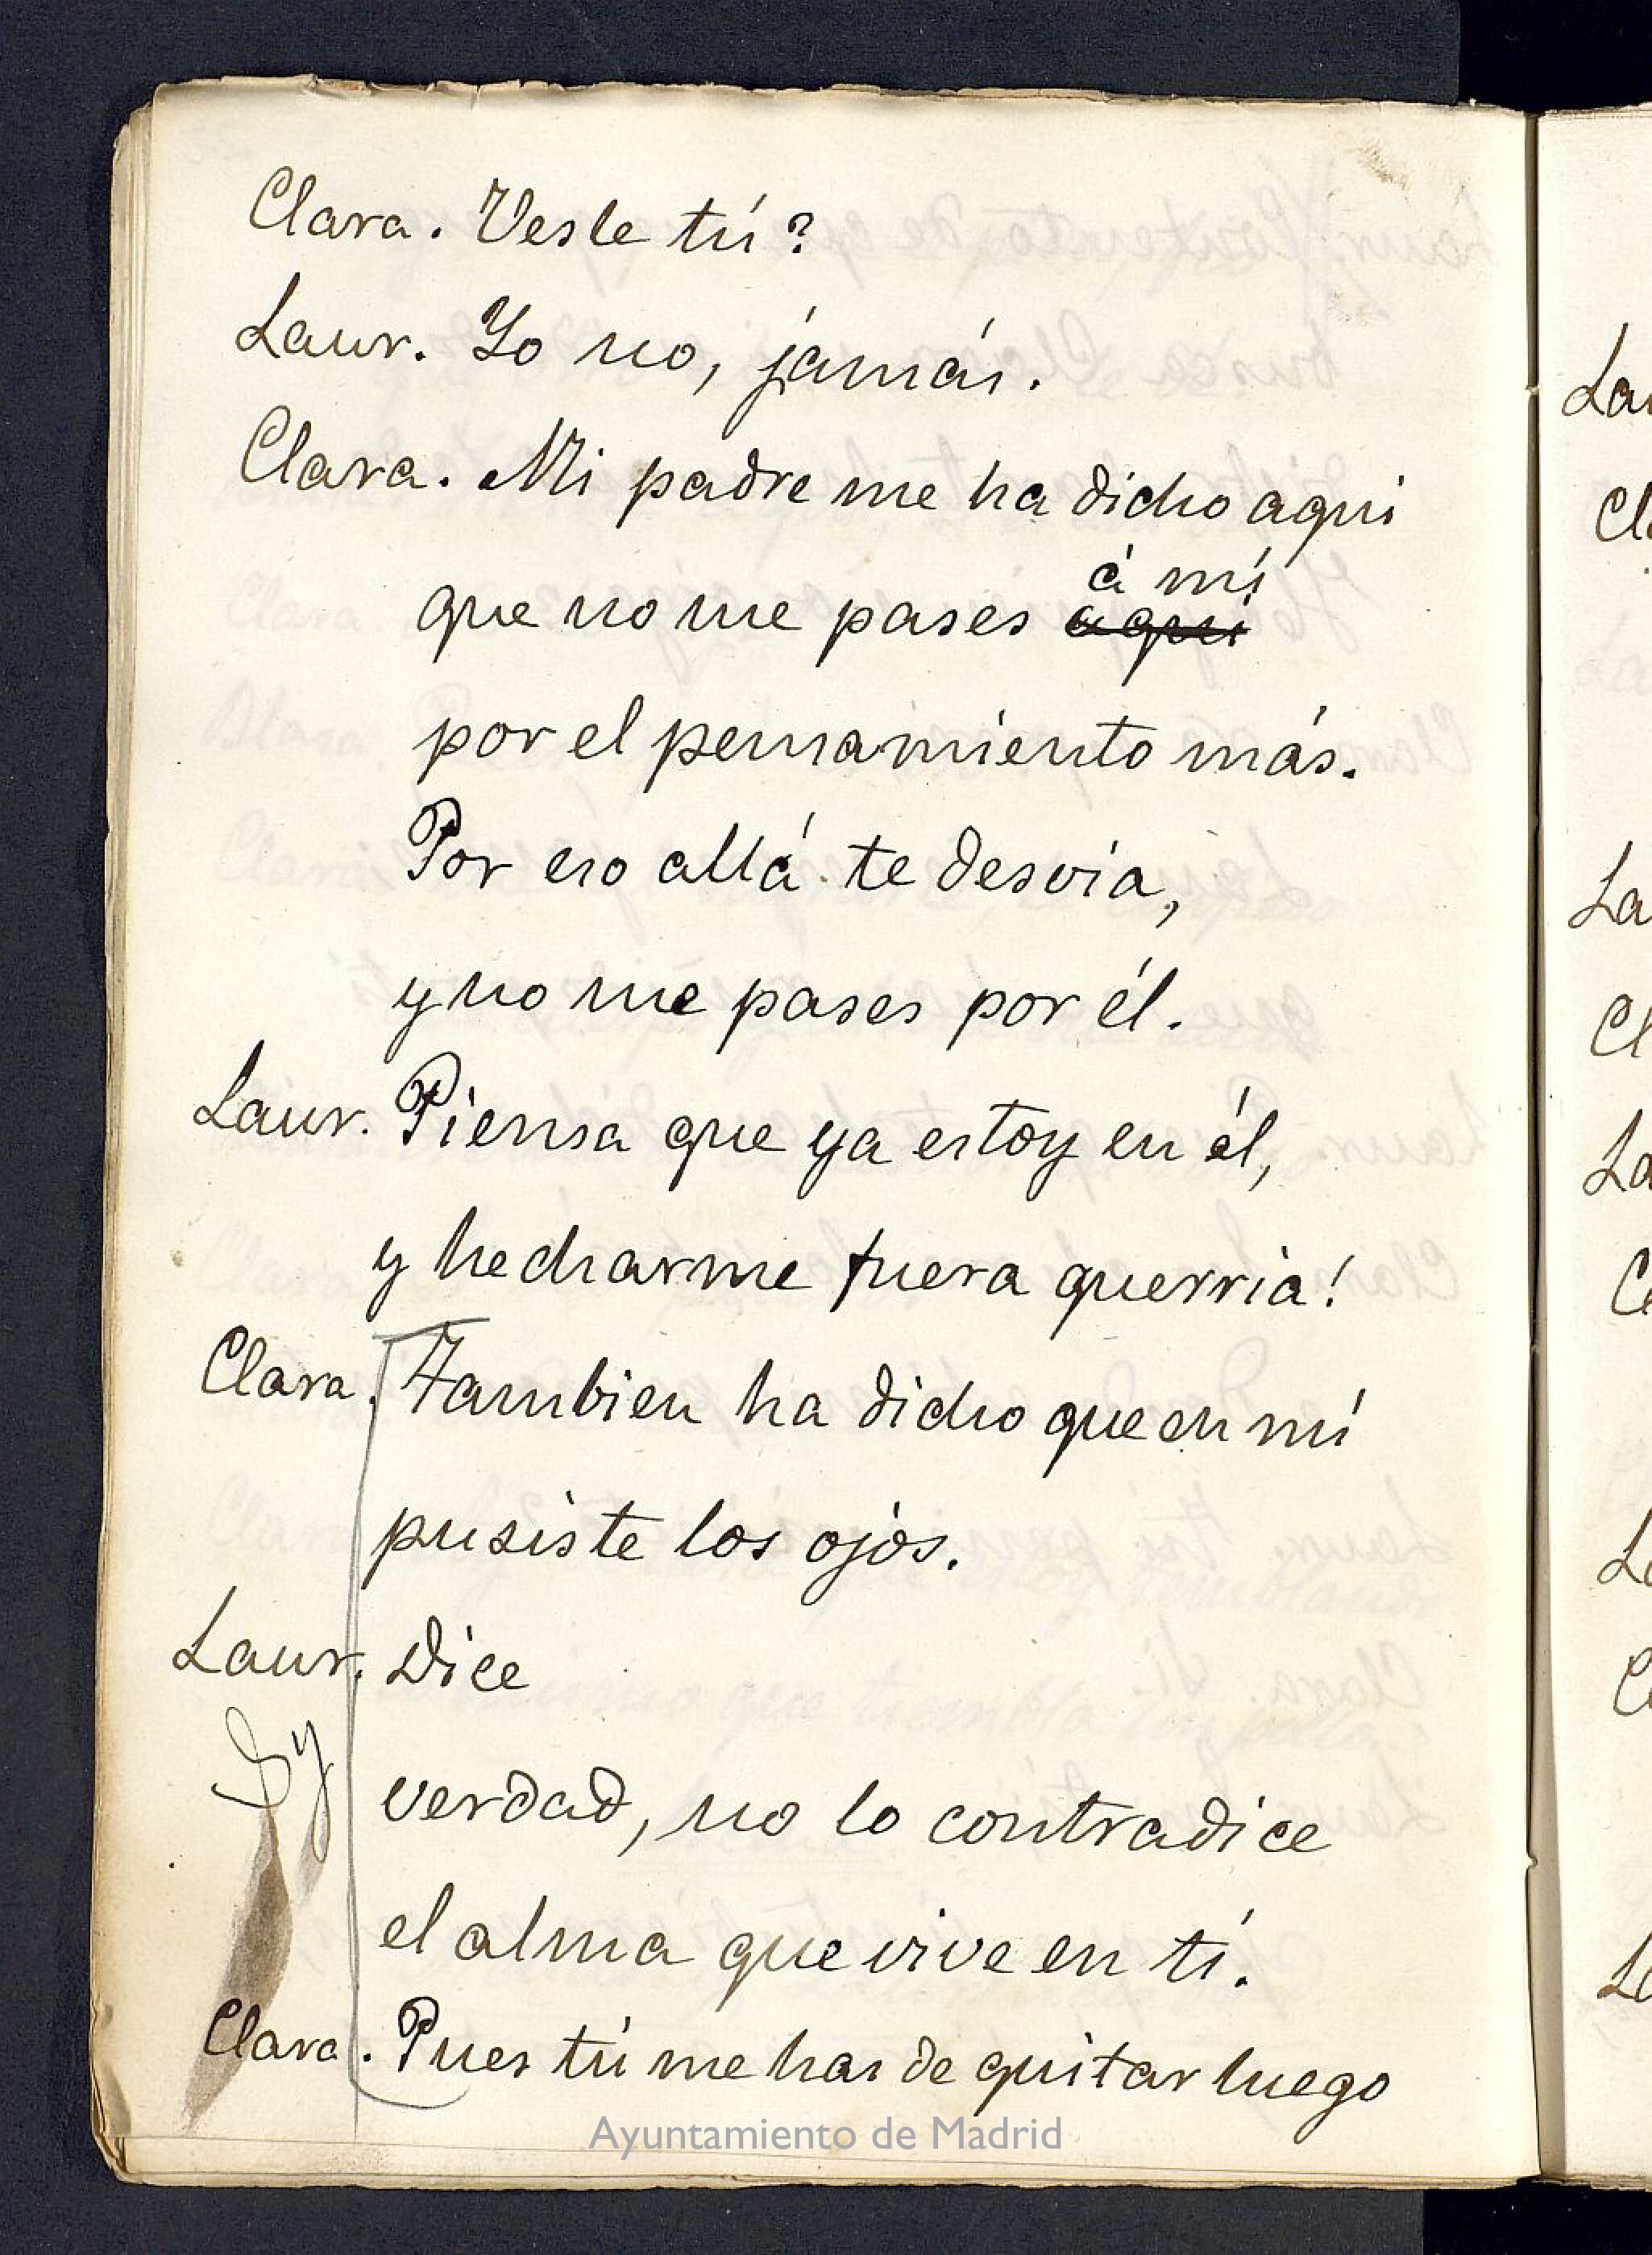 Clara. Vesle tú?
Laur. Yo no, jámás.
Clara. Mi padre me ha dicho aqui
á mí
que no me pases aqui
por el pensamiento más.
Por eso allá te desvia,
y no me pases por él.
Laur. Piensa que ya estoy en él,
y hecharme fuera querria!
Clara. Tambien ha dicho que en mí
pusiste los ojos.
Laur. Dice
verdad, no lo contradice
el alma que vive en tí.
Clara. Pues tú me has de quitar luego
Ayuntamiento de Madrid
La
Cl
La
Cl
La
C
L
C
L